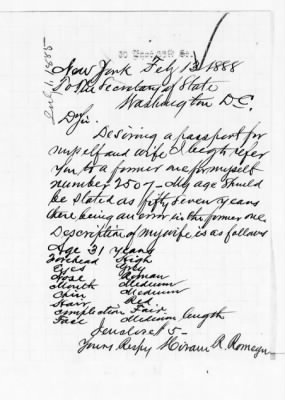 30 East 23rd St.
New York Feb 13 1888
To the Secretary of State
Washington D.C.
D Sir.
Desiring a passport for
myself and wife I beg to refer
you to a former one for myself
number 2507 - My age should
be stated as fifty seven years
there being an error in the former one
Description of my wife is as follows
Age 31 years
Forehead High
Eyes Grey
Nose Roman
Mouth Medium
Chin Medium
Hair Red
Complection Fair
Face Medium length
I enclose $5-
Yours Respy Hiram R. Romeyn
1885